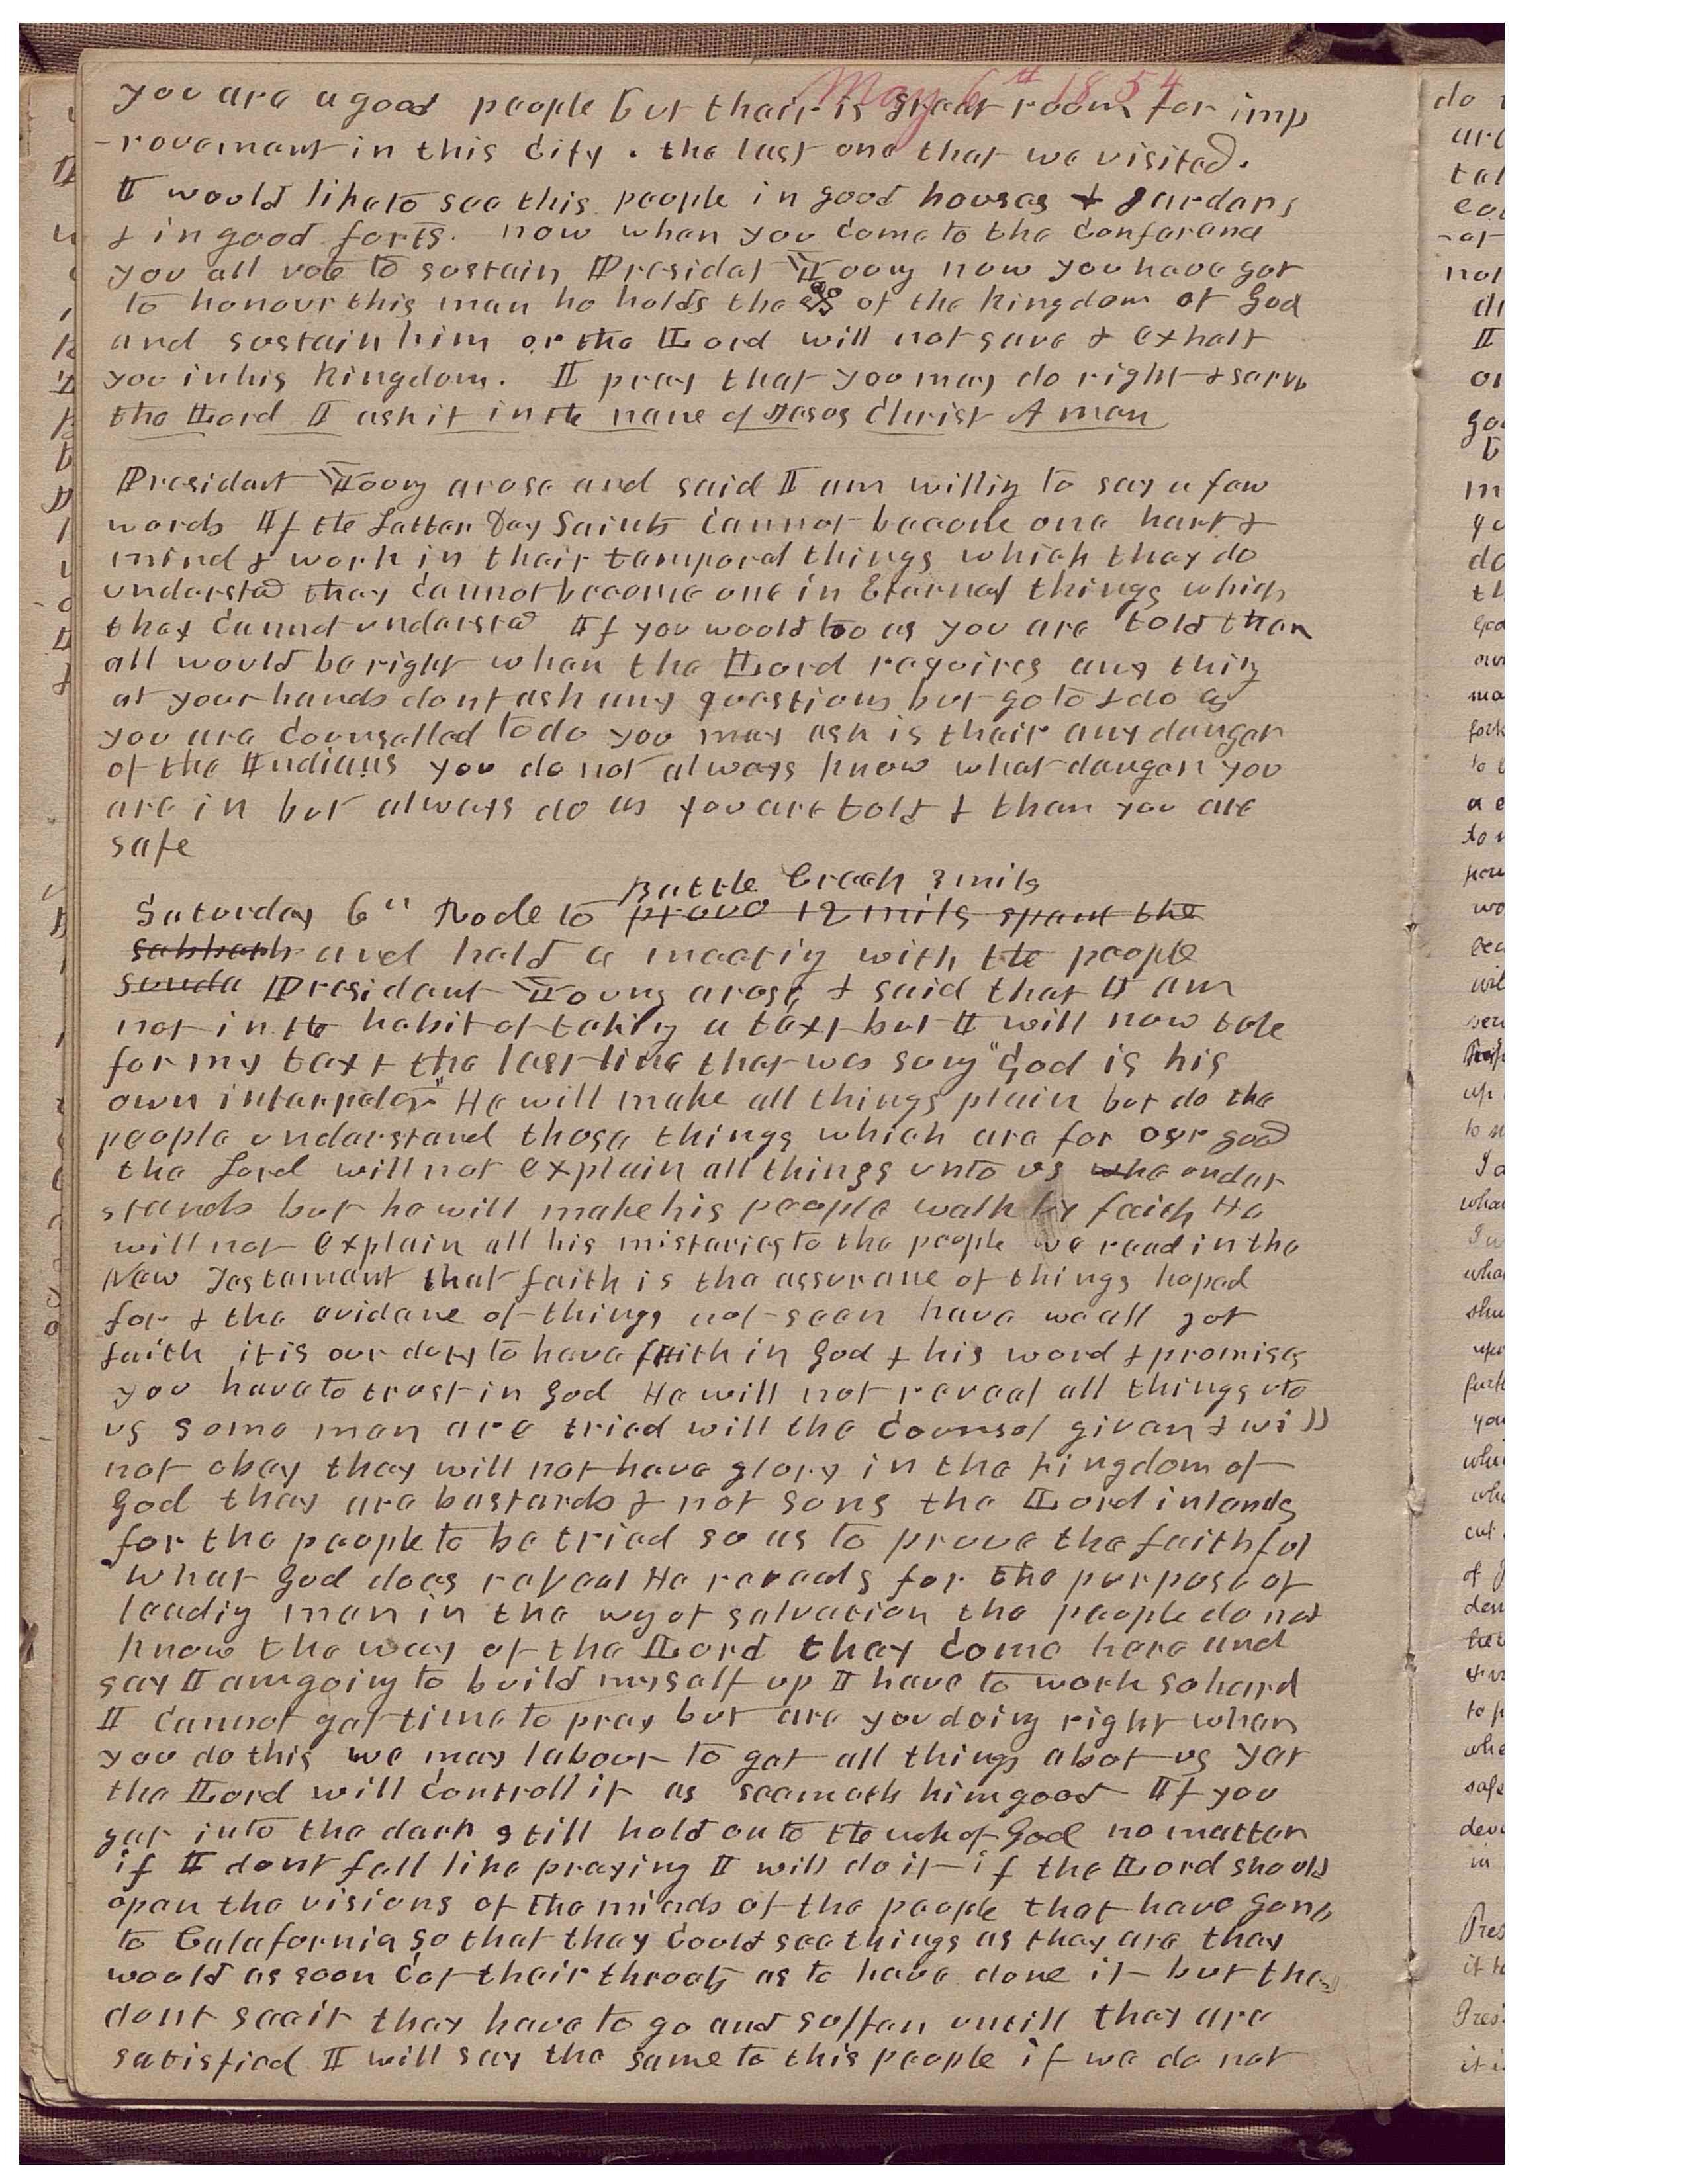 May 6th 1854
you are a good people but thair is great room for imp
-rovement in this City . the last one that we visited.
I would like to see this people in good houses & gardens
& in good forts. now when you Come to the Conferenc
you all vote to sustain Presidet Young now you have got
to honour this man he holds the of the Kingdom of God
and sustain him or the Lord will not save & exhalt
you in his Kingdom. I pray that you may do right & serve
the Lord I ask it in the name of Jesus Christ Amen
President Young arose and said I am willing to say a few
words If the Latter Day Saints Cannot become one hart &
mind & work in thair temporal things which they do
understad they Cannot become one in Eternal things which
they Cannot understad If you would too as you are told then
all would be right when the Lord requires any thing
at your hands dont ask any questions but go to & do as
you are Counselled to do you may ask is thair any danger
of the Indians you do not always know what danger you
are in but always do as you are told & then you are
safe
Battle Creek 3 mils
Saturday 6" Rode to provo 12 mils spent the
sabbath and held a meeting with the people
sunda President Young arose & said that I am
not in the habit of taking a text but I will now take
for my text the last line that was sung "God is his
own interpeter" He will make all things plain but do the
people understand those things which are for our good
the Lord will not explain all things unto us who under
stands but he will make his people walk by faith He
will not explain all his misteries to the people we read in the
New Testament that faith is the assurance of things hoped
for & the evidence of things not seen have we all got
faith it is our duty to have faith in God & his word & promises
you have to trust in God He will not reveal all things uto
us some men are tried will the Counsel given & will
not obey they will not have glory in the Kingdom of
God they are bastards & not sons the Lord intends
for the people to be tried so as to prove the faithful
what God does reveal He reveals for the purpose of
leadig men in the wy of salvation the people do not
know the way of the Lord they Come here and
say I am going to build myself up I have to work so hard
I Cannot get time to pray but are you doing right when
you do this we may labour to get all things abot us yet
the Lord will Controll it as seemeth him good If you
get into the dark still hold on to the wok of God no matter
if I dont fell like praying I will do it if the Lord should
open the visions of the minds of the people that have gone
to Calafornia so that they Could see things as they are they
would as soon Cot their throats as to have done it but they
dont see it they have to go and suffer untill they are
satisfied I will say the same to this people if we do not